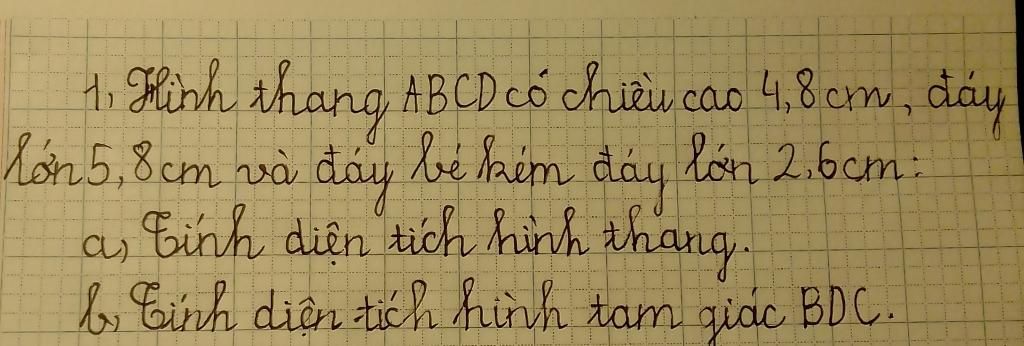 1, Hình thang ABCD có chiều cao 4,8cm, đáy
lớn 5,8cm và đáy bé kém đáy lớn 2,6cm:
a, Tính diện tích hình thang.
b, Tính diện tích hình tam giác BDC.